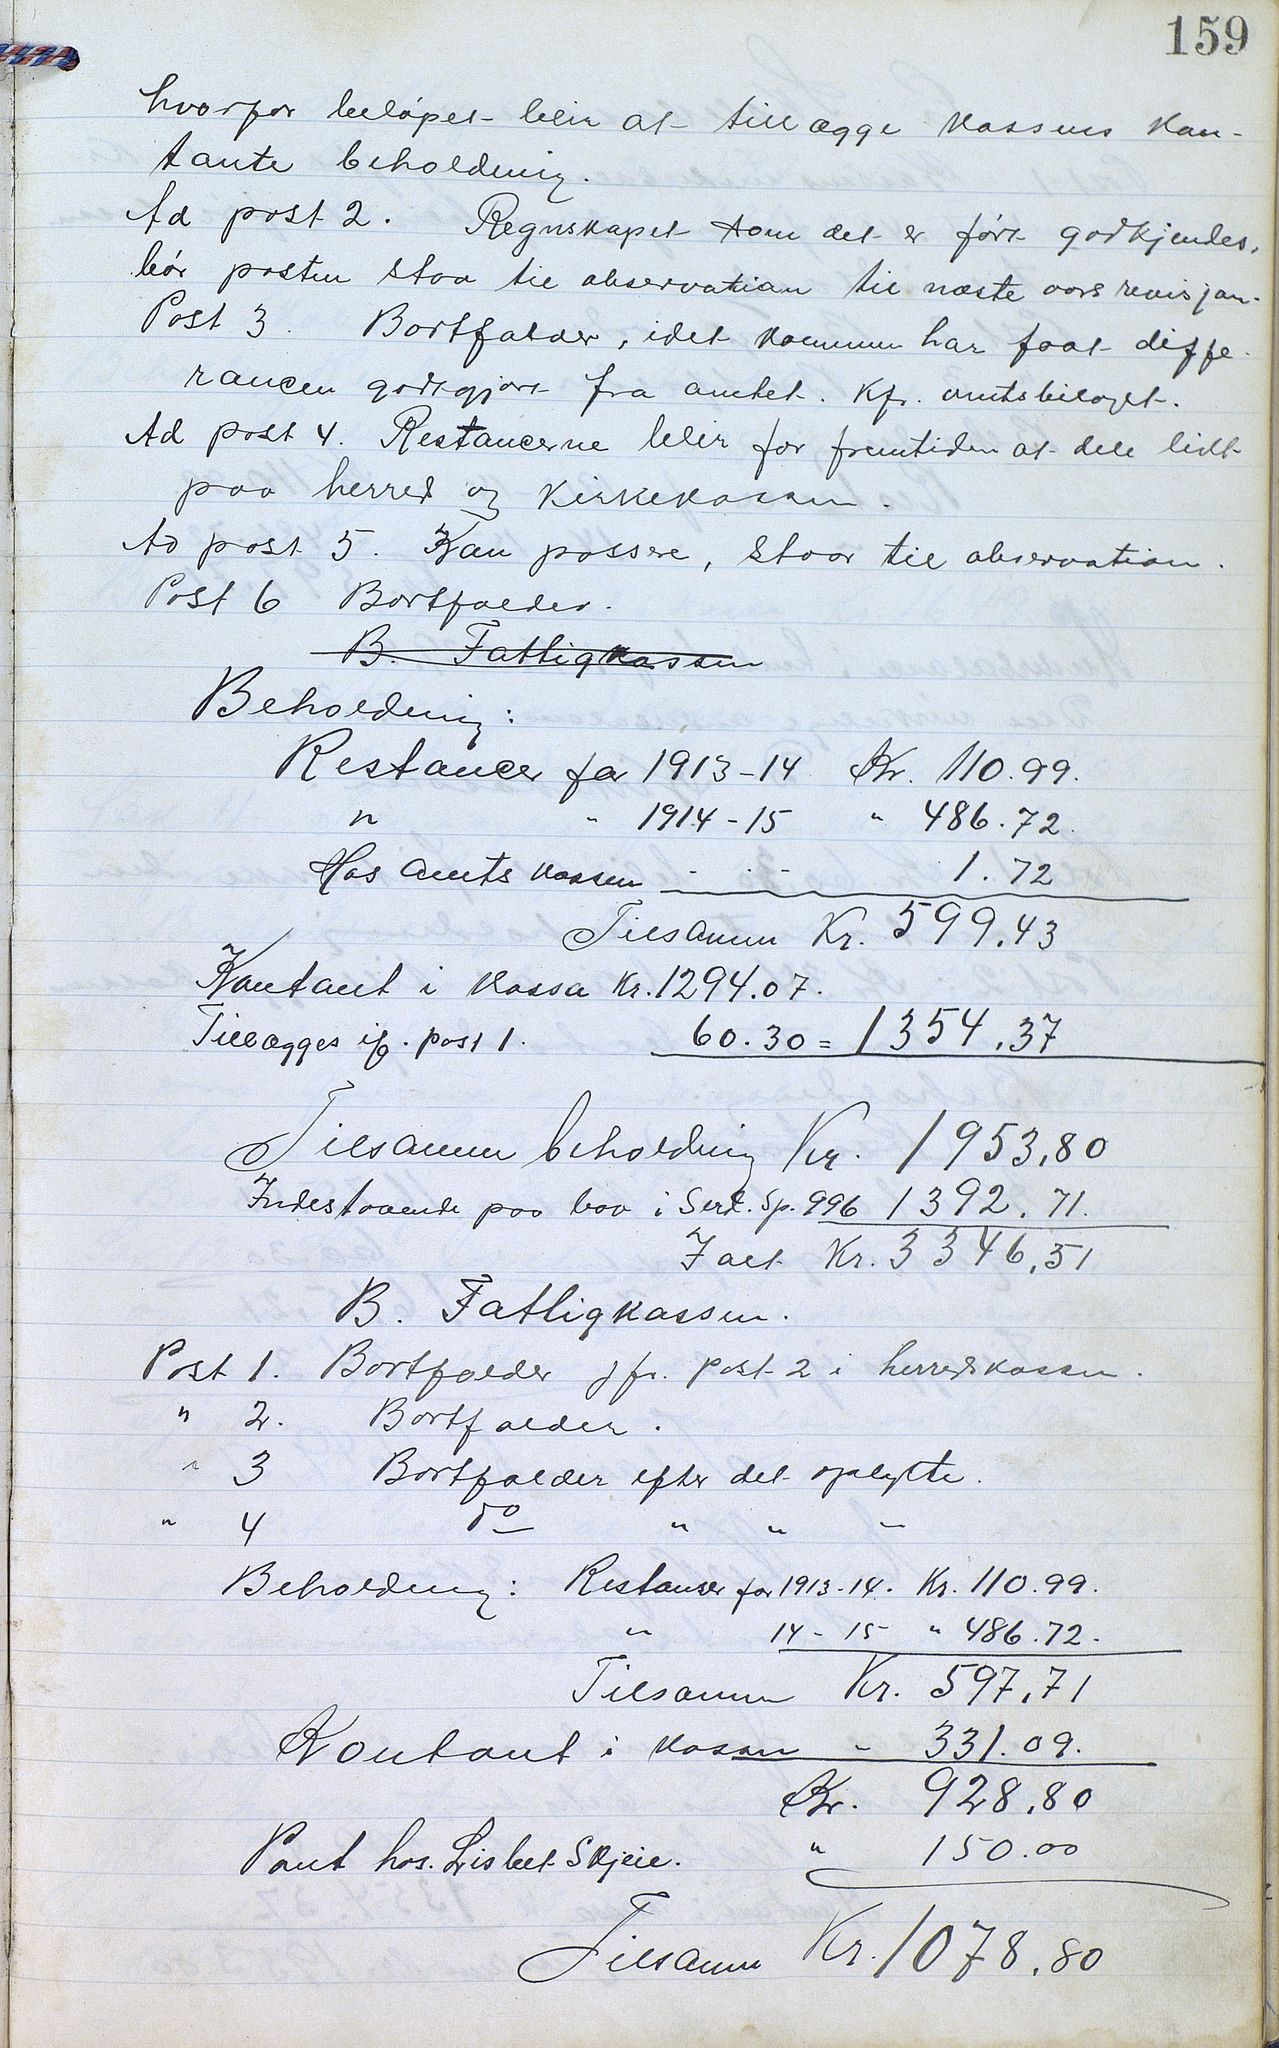 159
hvorfor beløpet blir at tillægge kassens kon-
tante beholdning.
Ad post 2. Regnskapet som det er ført godkjendes,
bør posten staa til observation til næste aars revisjon.
Post 3. Bortfalder, idet kommunen har faat diffe-
rancen godtgjort fra amtet. Kfr. amtsbilaget.
Ad post 4. Restancerne blir for fremtiden at dele likt
paa herred og Kirkekassen.
Ad post 5. Kan passere, staar til observation.
Post 6 Bortfalder.
B. Fattigkassen
Beholdning:
Restancer for 1913-14 Kr. 110.99.
" " 1914-15 " 486.72.
Hos amtskassen - - - 1.72
Tilsammen Kr. 599,43
Kontant i kassa Kr. 1294.07.
Tillægges if. post 1. 60.30 = 1354,37
Tilsammen beholdning Kr. 1953,80
Indestaaende paa bok i Setesd. Sp. 996 1392.71.
I alt Kr. 3346,51
B. Fattigkassen.
Post 1. Bortfalder jfr. post 2 i herredskassen.
" 2. Bortfalder.
" 3 Bortfalder efter det oplyste.
" 4 do " " "
Beholdning: Restanser for 1913-14. Kr. 110.99.
" 14-15 " 486.72.
Tilsammen Kr. 597,71
Kontant i kassen " 331.09.
Kr. 928,80
Pant hos. Lisbet Skjeie. " 150.00
Tilsammen Kr. 1078,80